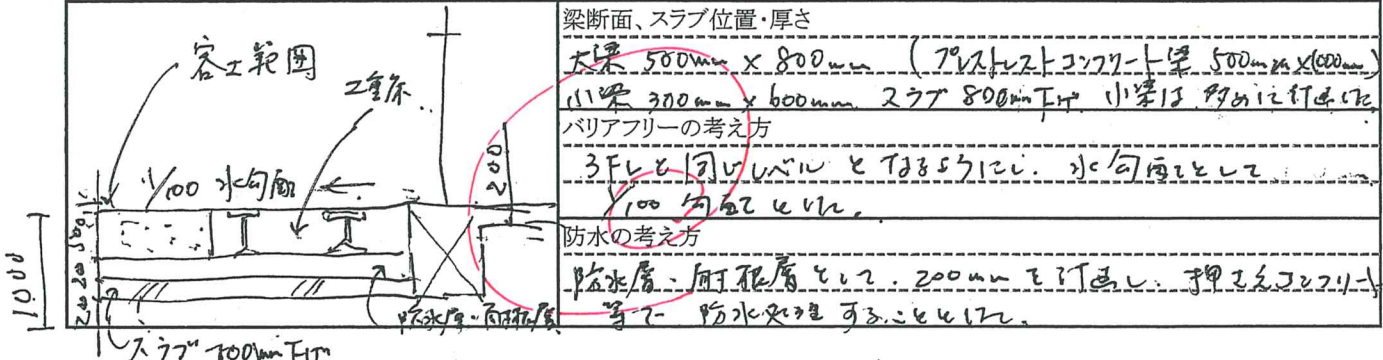 客土範囲
2重床
1/100 水勾配
200
1000
500
200
200
防水層・耐根層
スラブ 700mm下げ
梁断面、スラブ位置・厚さ
大梁 500mm × 800mm (プレストレストコンクリート梁 500mm×1000mm)
小梁 300mm × 600mm スラブ 800mm下げ 小梁は 多めに計画した
バリアフリーの考え方
3FLと同じレベル となるようにし. 水勾配として
1/100 勾配 とした.
防水の考え方
防水層・耐根層 として. 200mm を計画し. 押さえコンクリート
等で 防水処理 することとした.